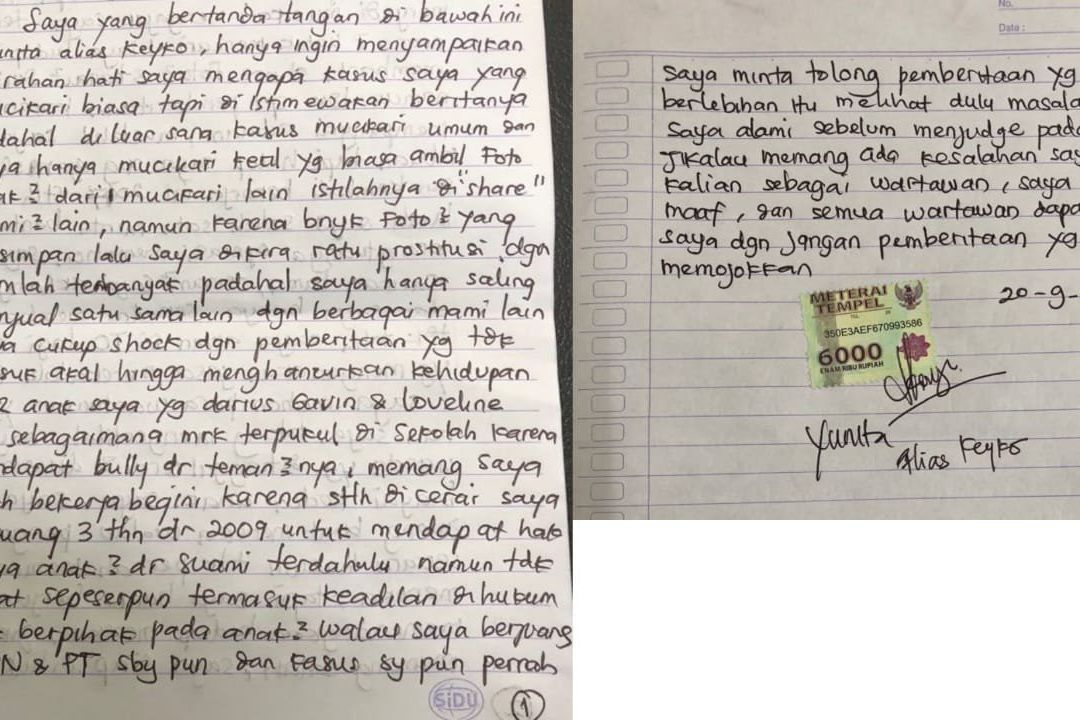 Saya yang bertanda tangan di bawah ini
unita alias Keyko, hanya ingin menyampaikan
rahan hati saya mengapa kasus saya yang
ucikari biasa tapi di istimewakan beritanya
dahal di luar sana kasus mucikari umum dan
ya hanya mucikari kecil yg biasa ambil Foto
ak 2 dari mucikari lain istilahnya di "share"
mi 2 lain, namun karena bnyk Foto 2 yang
simpan lalu saya dikira ratu prostitusi dgn
mlah terbanyak padahal saya hanya saling
njual satu sama lain dgn berbagai mami lain
ya cukup shock dgn pemberitaan yg tdk
suk akal hingga menghancurkan kehidupan
2 anak saya yg darius Gavin & Loveline
sebagaimana mrk terpukul di sekolah karena
dapat bully dr teman 2 nya, memang saya
h bekerja begini karena stlh di cerai saya
uang 3 thn dr 2009 untuk mendapat hak
ya anak 2 dr suami terdahulu namun tdk
at sepeserpun termasuk keadilan di hukum
k berpihak pada anak 2 walau saya berjuang
N & PT Sby pun dan kasus sy pun pernah
SiDU
1
No.
Date :
Saya minta tolong pemberitaan yg
berlebihan itu melihat dulu masala
saya alami sebelum menjudge pada
Jikalau memang ada kesalahan say
kalian sebagai wartawan, saya
maaf, dan semua wartawan dapa
saya dgn jangan pemberitaan yg
memojokkan
20-9-
METERAI
TEMPEL
TGL 20
350E3AEF670993586
6000
ENAM RIBU RUPIAH
Yunita
Alias Keyko